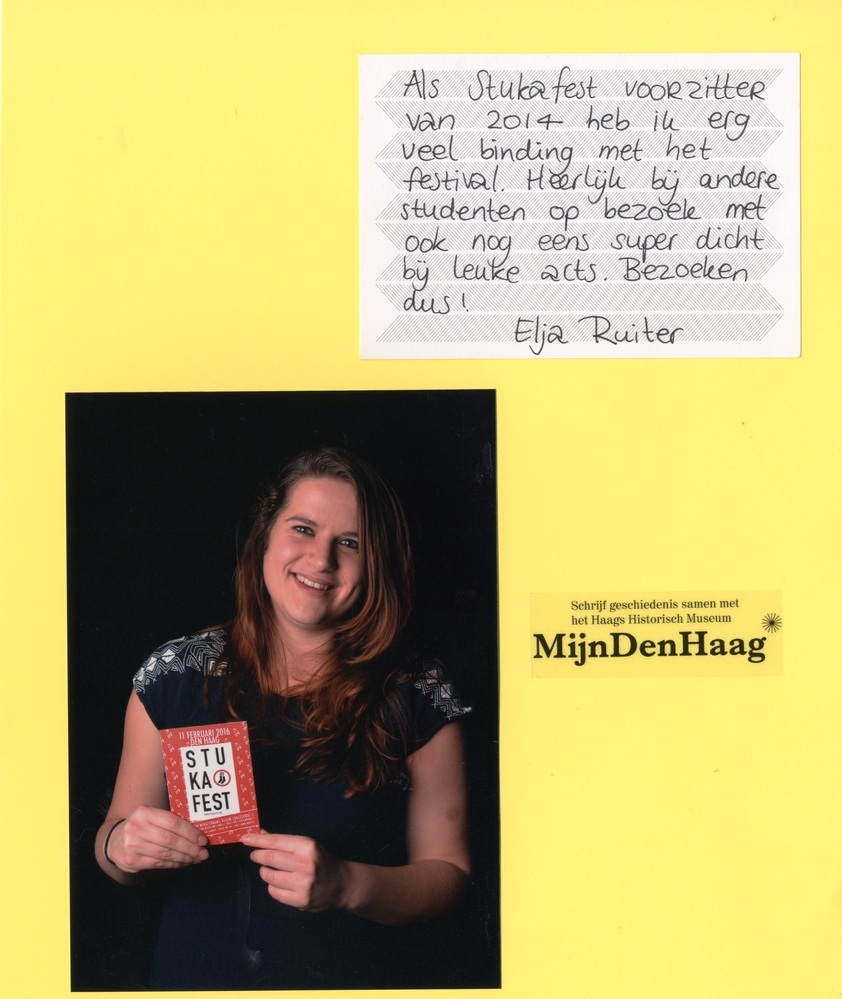 Als Stukafest voorzitter
van 2014 heb ik erg
veel binding met het
festival. Heerlijk bij andere
studenten op bezoek met
ook nog eens super dicht
bij leuke acts. Bezoeken
dus!
Elja Ruiter
Schrijf geschiedenis samen met
het Haags Historisch Museum
MijnDenHaag
11 FEBRUARI 2016
DEN HAAG
STU
KA
FEST